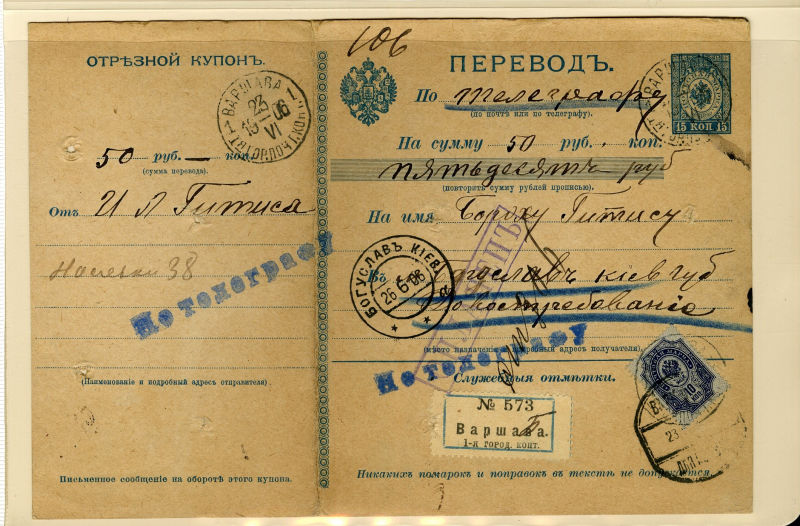 ОТРѢЗНОЙ КУПОНЪ.
ВАРШАВА 1
23
19-06
VI
50 руб. — коп.
(сумма перевода).
Отъ И Л Гитиса
38
По телеграфу
(Наименованіе и подробный адресъ отправителя).
Письменное сообщеніе на оборотѣ этого купона.
106
ПЕРЕВОДЪ.
15 КОП 15
По телеграфу
(по почтѣ или по телеграфу).
На сумму 50 руб. коп.
пятьдесятъ руб
(повторить сумму рублей прописью).
На имя Боруху Гитису
БОГУСЛАВЪ КІЕВ.
26 6 06
Въ Богославъ кіев губ
Довостребованіа
(мѣсто назначенія и подробный адресъ получателя).
По телеграфу
Служебныя отмѣтки.
№ 573
Варшава.
1-я город. конт.
10
23
Никакихъ помарокъ и поправокъ въ текстѣ не допускается.